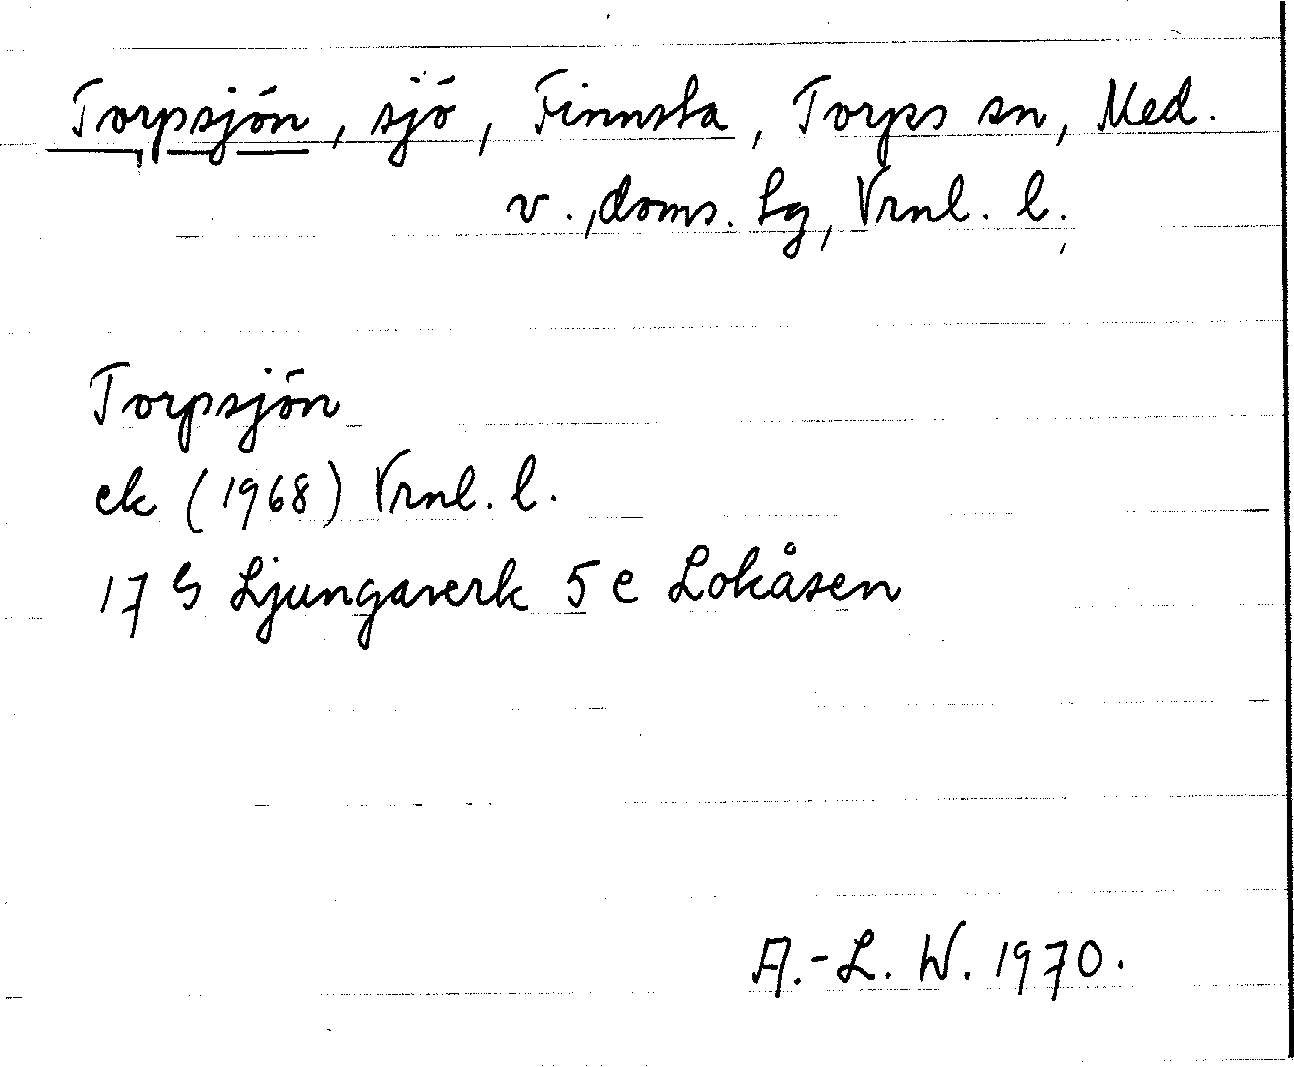 Torpsjön, sjö, Finnsta, Torps sn, Med.
v., doms. lg, Vrnl. l.
Torpsjön
ek (1968) Vrnl. l.
17 G Ljungaverk 5 e Lokåsen
A.-L. W. 1970.